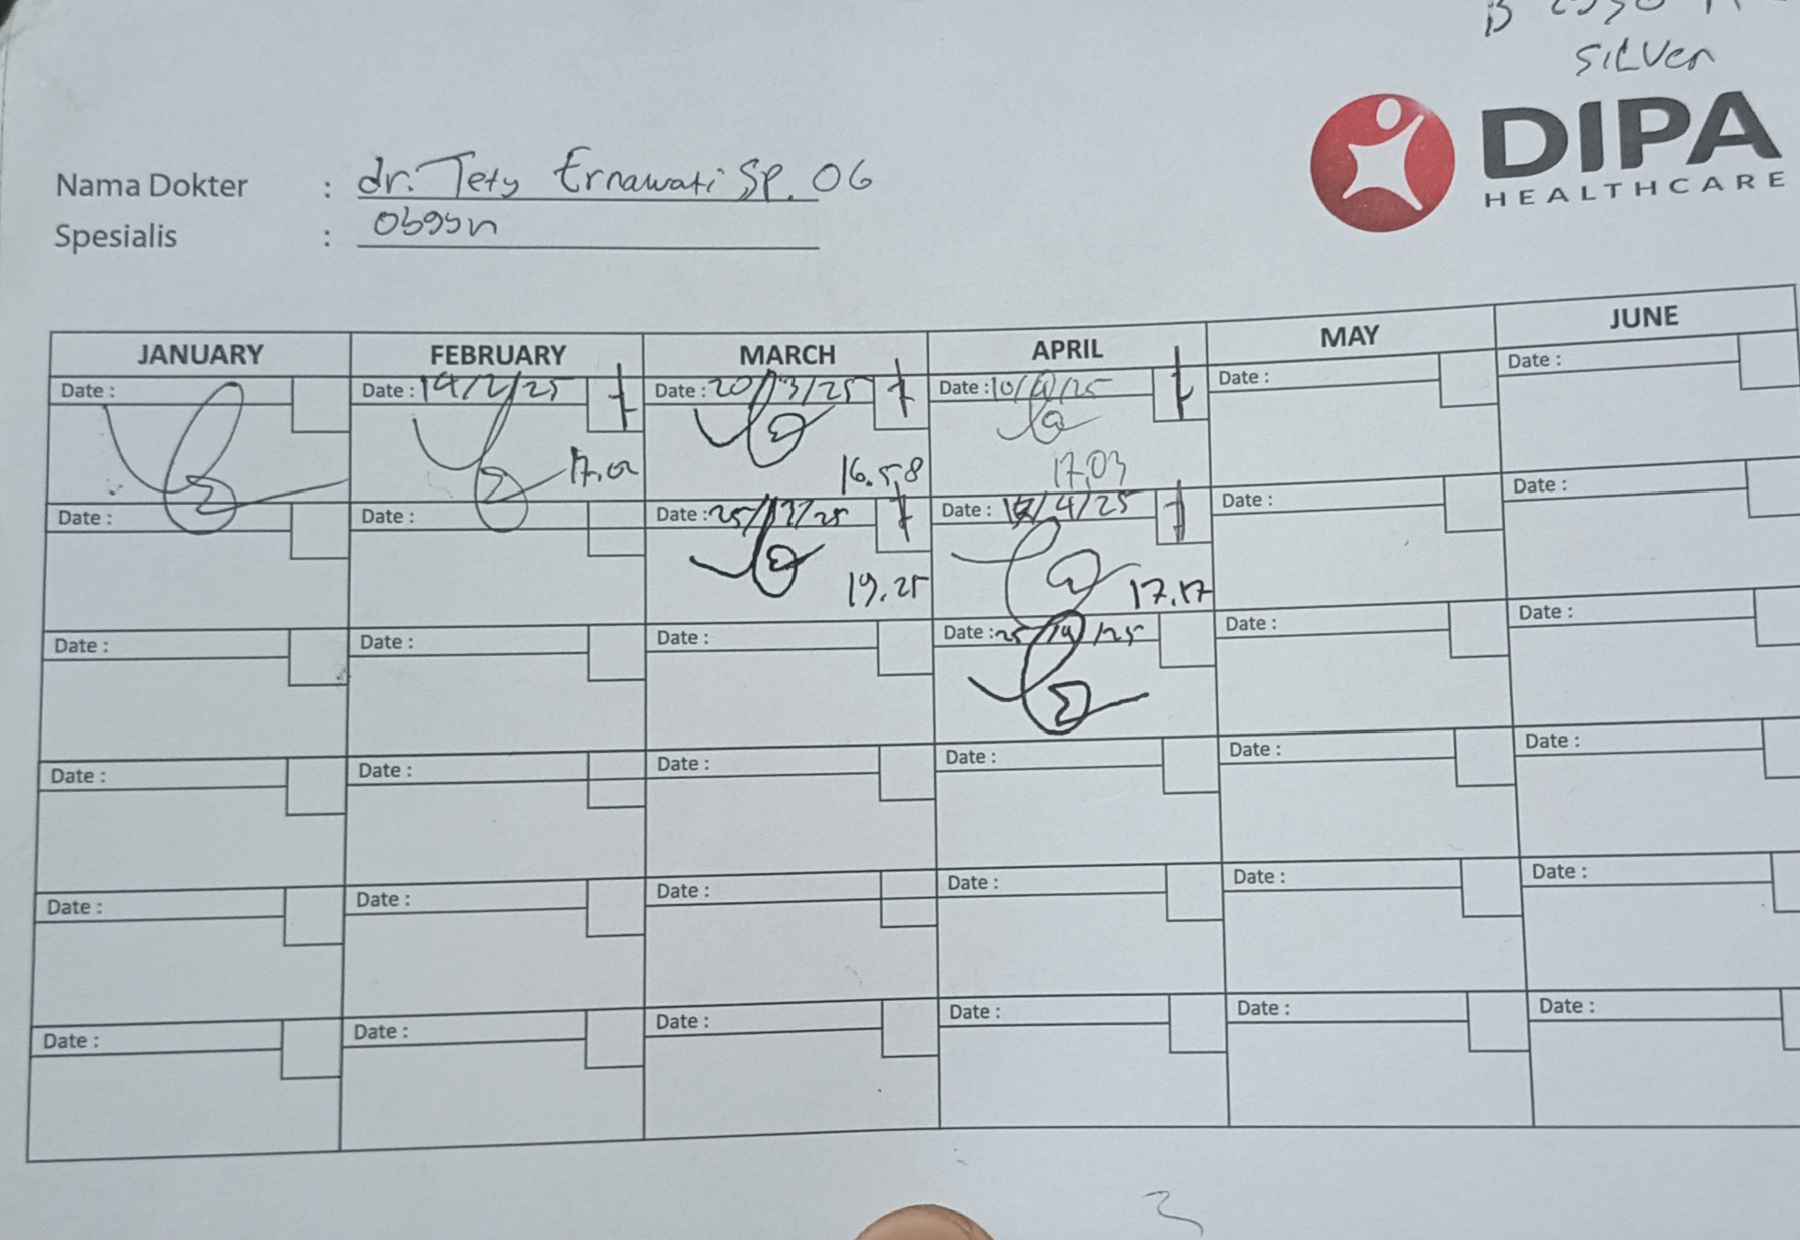 SILVER
DIPA
HEALTHCARE
Nama Dokter : dr. Tety Ernawati Sp. OG
Spesialis : Obgyn
JANUARY FEBRUARY MARCH APRIL MAY JUNE
Date : Date : 14/2/25 Date : 20/3/25 Date : 10/4/25 Date : Date :
17.02 16.58 17.03
Date : Date : Date : 25/3/25 Date : 17/4/25 Date : Date :
19.25 17.17
Date : Date : Date : Date : 25/4/25 Date : Date :
Date : Date : Date : Date : Date : Date :
Date : Date : Date : Date : Date : Date :
Date : Date : Date : Date : Date : Date :